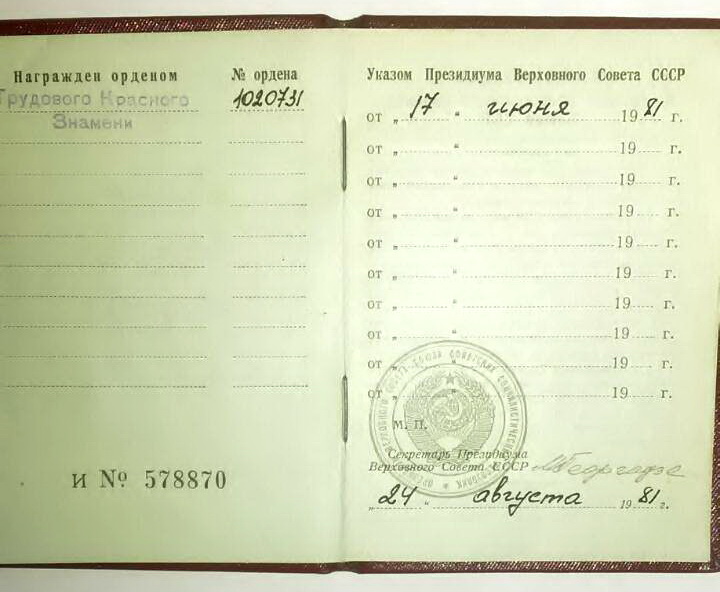 Награжден орденом
№ ордена
Трудового Красного
Знамени
1020731
И № 578870
Указом Президиума Верховного Совета СССР
от „ 17 “ июня 1981 г.
от „ “ 19 г.
от „ “ 19 г.
от „ “ 19 г.
от „ “ 19 г.
от „ “ 19 г.
от „ “ 19 г.
от „ “ 19 г.
от „ “ 19 г.
от „ “ 19 г.
М. П.
Секретарь Президиума
Верховного Совета СССР
МГеоргадзе
„24“ августа 1981 г.